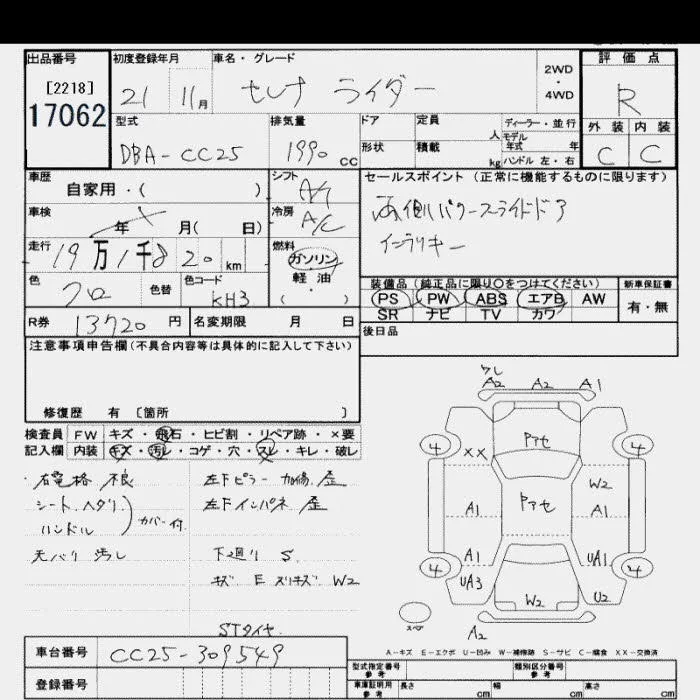 出品番号 初度登録年月 車名・グレード 評価点
[2218]
17062
21 11月 セレナ ライダー 2WD ・ 4WD R
外装 内装
C C
型式 排気量 ドア 定員 人 ディーラー・並行
DBA-CC25 1990 CC 形状 積載 kg モデル年式 年
ハンドル 左・右
車歴 自家用・( ) シフト A/T セールスポイント (正常に機能するものに限ります)
車検 年 月( 日) 冷房 A/C 両側パワースライドドア
走行 19万1千820 km 燃料 ガソリン 軽油 ・ ( ) インテリキー
色 クロ 色替 色コード KH3
装備品 (純正品に限り〇をつけてください) 新車保証書
PS PW ABS エアB AW 有・無
SR ナビ TV カワ
R券 13720 円 名変期限 月 日 後日品
注意事項申告欄(不具合内容等は具体的に記入して下さい)
修復歴 有 [箇所 ]
検査員 FW キズ・飛石・ヒビ割・リペア跡・×要
記入欄 内装 キズ・汚レ・コゲ・穴・スレ・キレ・破レ
右電格 不良 左Fピラー 加修.歪
シート.ヘタリ 左Fインパネ 歪
ハンドル カバー付
天バリ 汚レ 下廻り S.
キズ E スリキズ W2
STタイヤ
A2 A2 A1
Pアセ
4 XX 4
W2
A1 Pアセ A1
A1 UA1
4 UA3 4
W2 U2
スペア A2
A-キズ E-エクボ U-凹み W-補修跡 S-サビ C-腐食 XX-交換済
車台番号 CC25-309549
登録番号
型式指定番号 参考 類別区分番号 参考
車庫証明用 参考 長さ cm 幅 cm 高さ cm